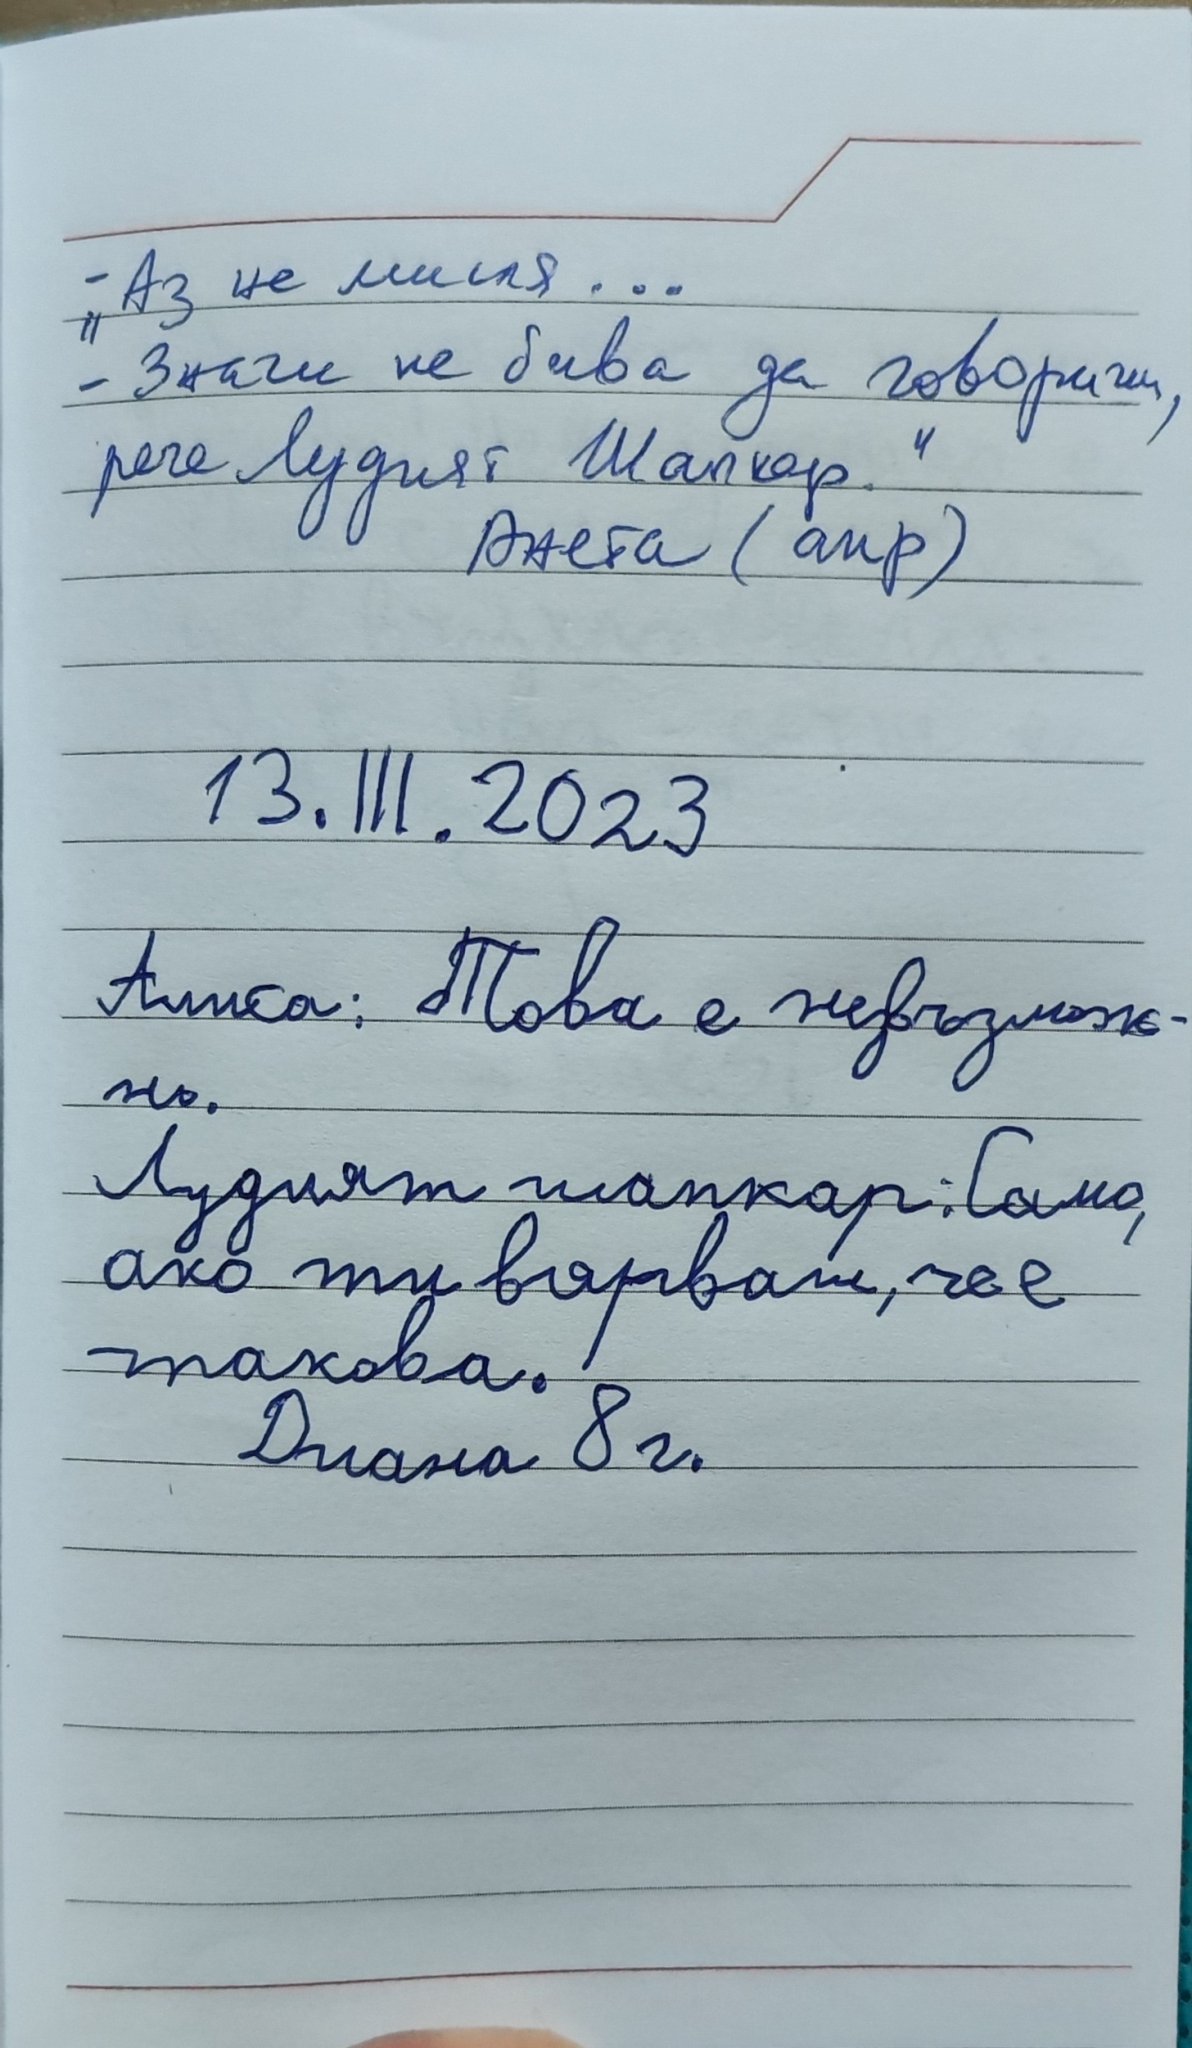 „- Аз не мисля...
- Значи не бива да говориш,
рече Лудият Шапкар."
Анета (апр)
13.III.2023
Алиса: Това е невъзмож-
но.
Лудият шапкар: Само,
ако ти вярваш, че е
такова.
Диана 8 г.